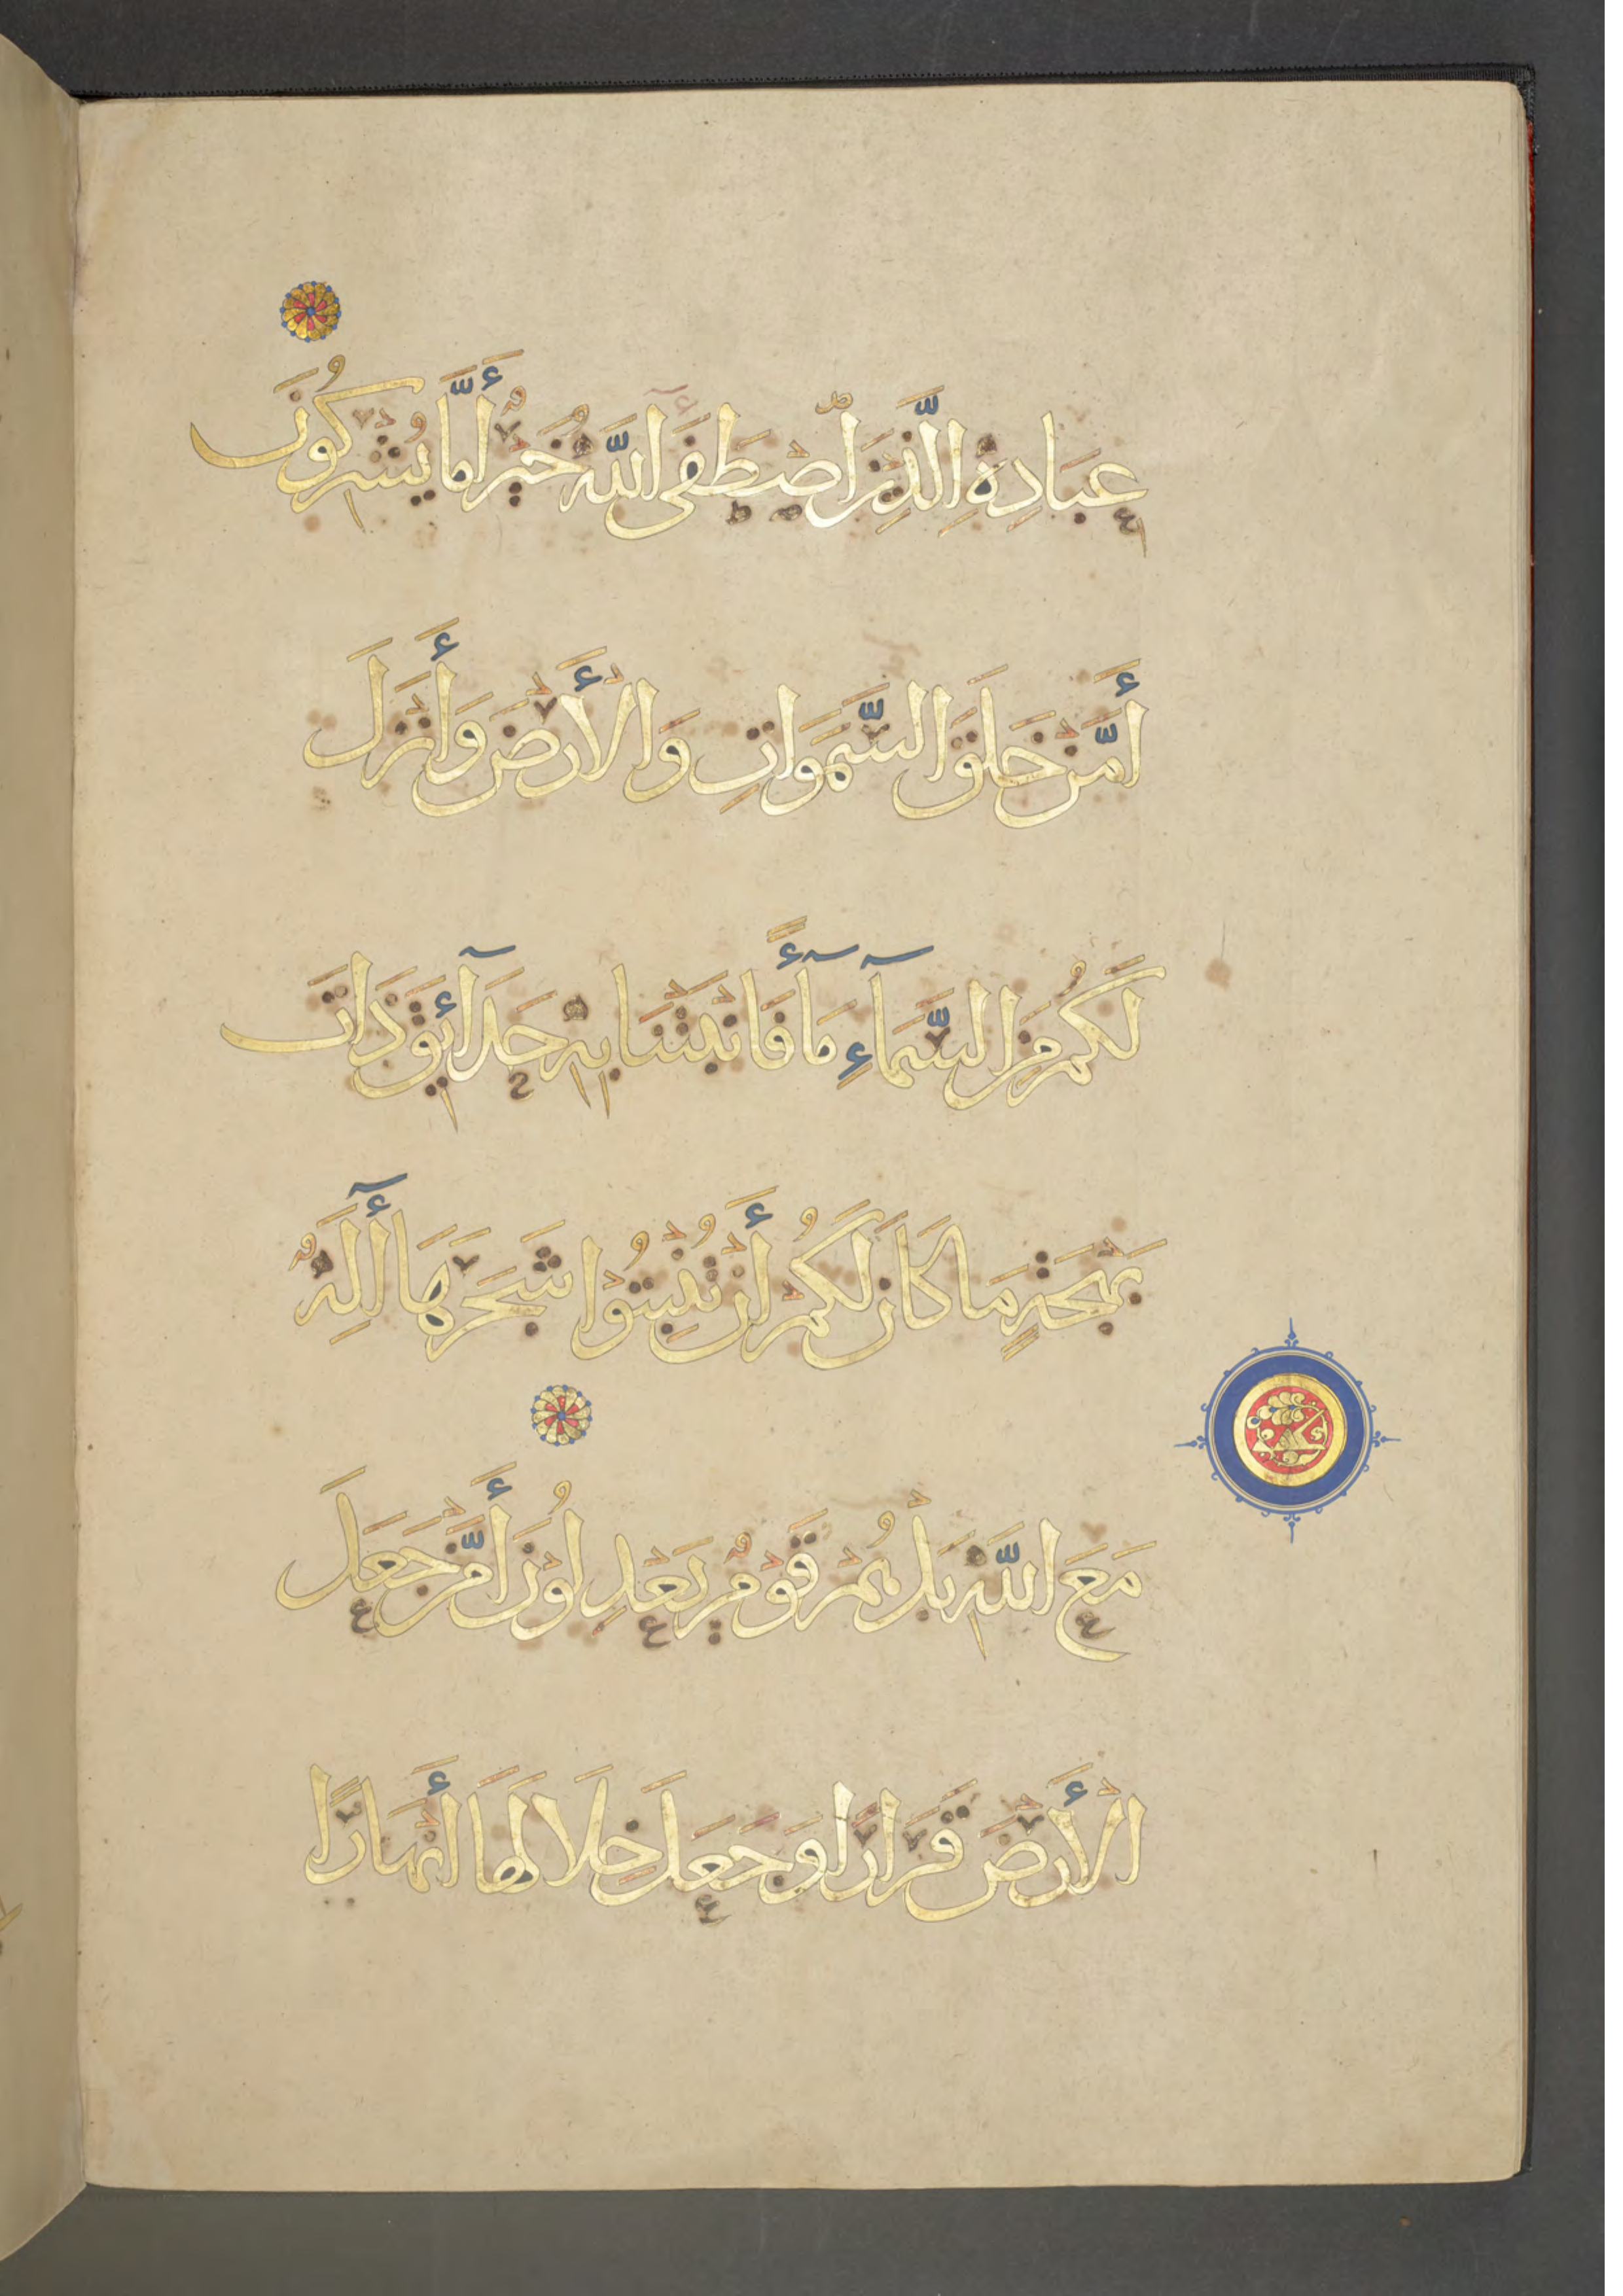 عِبَادِهِ الَّذِينَ اصْطَفَى اللَّهُ خَيْرٌ أَمَّا يُشْرِكُونَ
أَمَّنْ خَلَقَ السَّمَوَاتِ وَالْأَرْضَ وَأَنْزَلَ
لَكُمْ مِنَ السَّمَآءِ مَآءً فَانْبَتْنَا بِهِ حَدَآئِقَ ذَاتَ
بَهْجَةٍ مَا كَانَ لَكُمْ أَنْ تُنْبِتُوْا شَجَرَهَا أَإِلَهٌ
مَعَ اللَّهِ بَلْ هُمْ قَوْمٌ يَعْدِلُوْنَ أَمَّنْ جَعَلَ
الْأَرْضَ قَرَارًا وَجَعَلَ خِلَالَهَا أَنْهَارًا